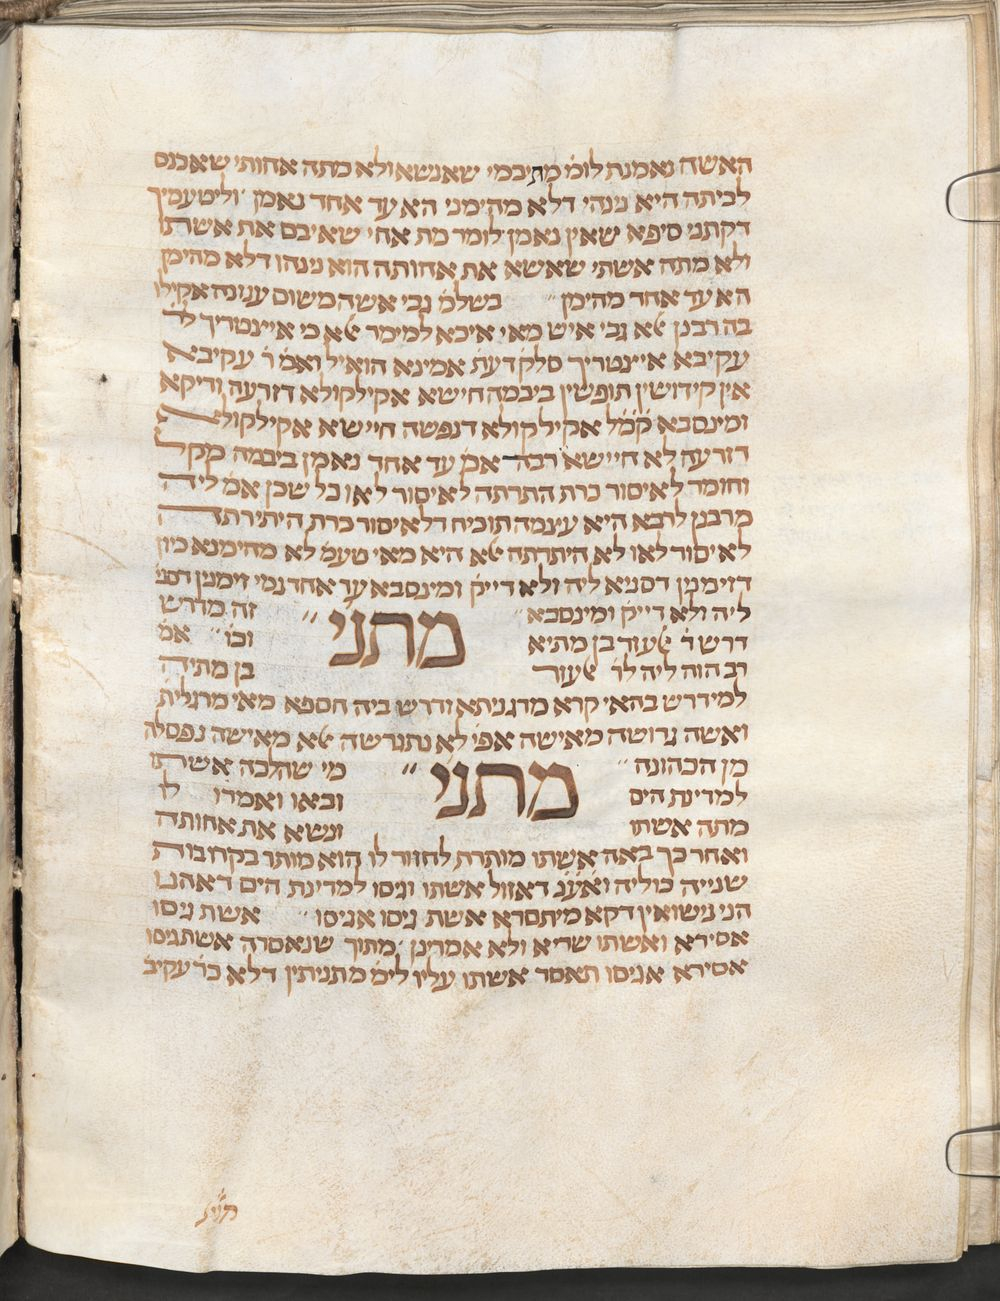 האשה נאמנת לומ׳ מת יבמי שאנשא ולא מתה אחותי שאכנס
לביתה היא נינהי דלא מהימני הא עד אחד נאמן וליטעמיך
דקתני סיפא שאין נאמן לומר מת אחי שאיבם את אשתו
ולא מתה אשתי שאשא את אחותה הוא נינהו דלא מהימן
הא עד אחד מהימן בשלמ׳ גבי אשה משום עגונה אקילו
בה רבנן אלא גבי איש מאי איכא למימר אלא כי איינטריך לר׳
עקיבא איינטריך סלקדעת אמינא הואיל ואמ׳ ר׳ עקיבא
אין קידושין תופשין ביבמה חיישא אקילקולא דזרעה ודיקא
ומינסבא קמ״ל אקילקולא דנפשה חיישא אקילקולא
דזרעה לא חיישא רבה אמ׳ עד אחד נאמן ביבמה מקל
וחומר לאיסור כרת התרתה לאיסור לאו כל שכן אמ׳ ליה
מרבנן לרבא היא עינמה תוכיח דלאיסור כרת היתירתה
לאיסור לאו לא היתרתה אלא היא מאי טעמ׳ לא מהימנא כיון
דזימנין דסניא ליה ולא דייק׳ ומינסבא עד אחד נמי זימנין דסני
ליה ולא דייק׳ ומינסבא מתני׳ זה מדרש
דרש ר׳ אלעזר בן מתיא וכו׳ אמ׳
רב הוה ליה לר׳ אלעזר בן מתיה
למידרש בהאי קרא מרגניתא ודרש ביה חספא מאי מרגלית
ואשה גרושה מאישה אפי׳ לא נתגרשה אלא מאישה נפסלה
מן הכהונה מתני׳ מי שהלכה אשתו
למדינת הים ובאו ואמרו לו
מתה אשתו ונשא את אחותה
ואחר כך באה אשתו מותרת לחזור לו הוא מותר בקרובות
שנייה כוליה ואע״ג דאזול אשתו וגיסו למדינת הים דאהנו
הני נישואין דקא מיתסרא אשת גיסו אגיסו אשת גיסו
אסירא ואשתו שריא ולא אמרינן מתוך שנאסרה אשת גיסו
אסירא אגיסו תאסר אשתו עליו לימ׳ מתניתין דלא כר׳ עקיב׳